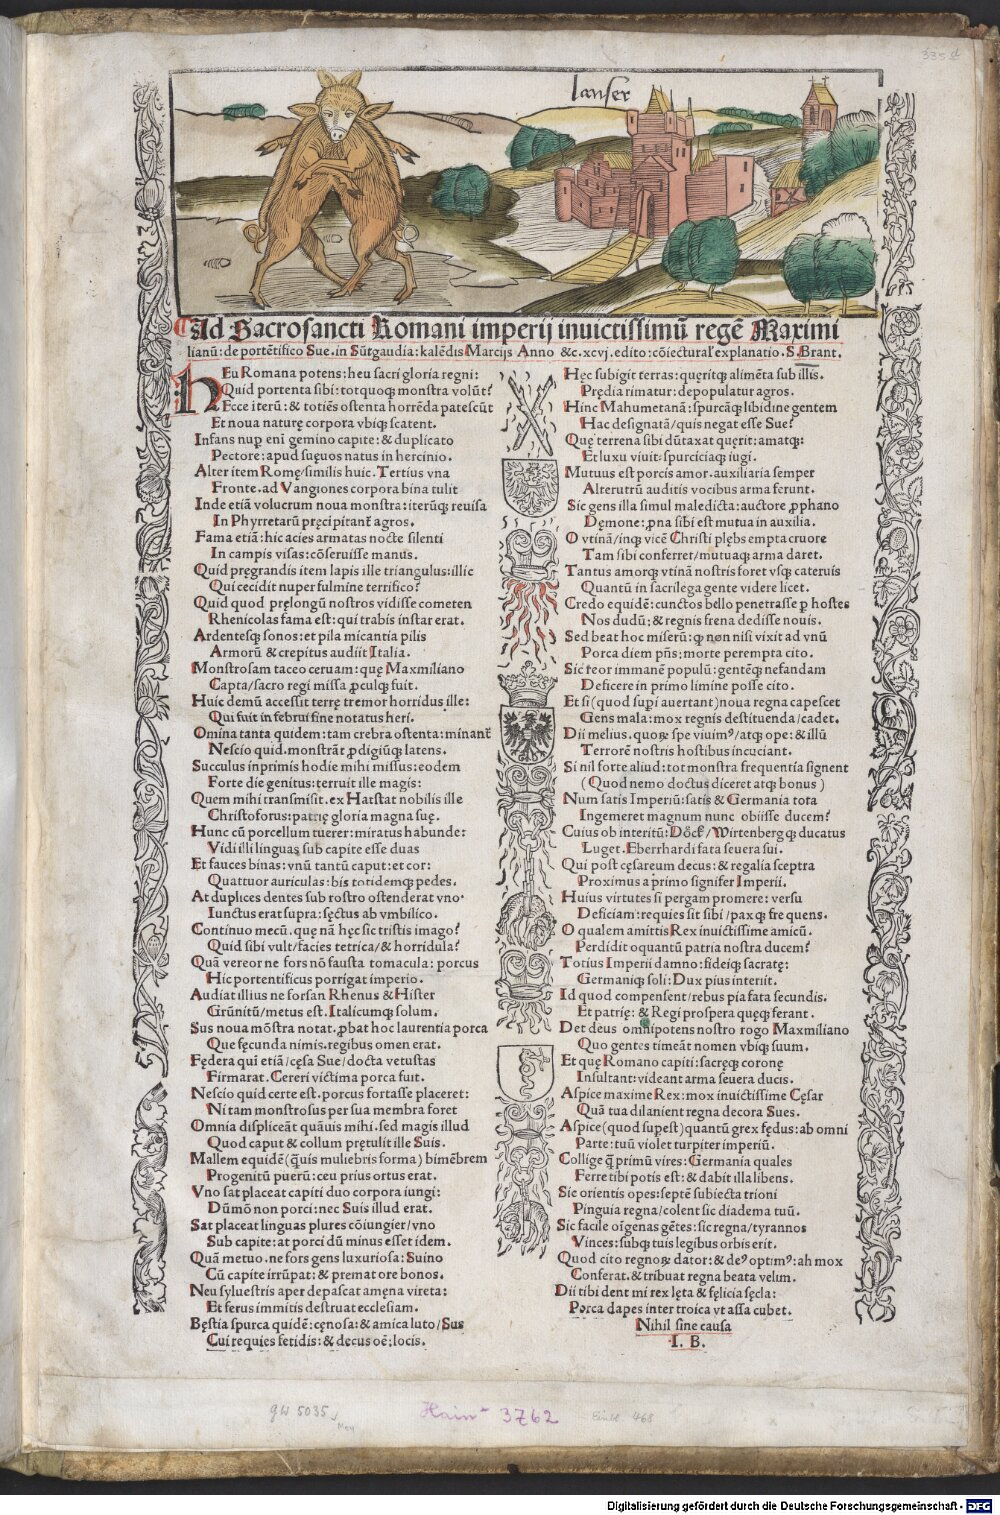 335 d
lanser
Ad Sacrosancti Romani imperij inuictissimū regē Maximi
lianū: de portētifico Sue. in Sūtgaudia: kalēdis Marcijs Anno &c. xcvj. edito: cōiectural' explanatio. S. Brant.
HEu Romana potens: heu sacri gloria regni:
Quid portenta sibi: totquoq; monstra volūt?
Ecce iterū: & totiēs ostenta horrēda patescūt
Et noua naturę corpora vbiq; scatent.
Infans nup̱ eni gemino capite: & duplicato
Pectore: apud sueuos natus in hercinio.
Alter item Romę/similis huic. Tertius vna
Fronte. ad Vangiones corpora bina tulit
Inde etiā volucrum noua monstra: iterūq; reuisa
In Phyrretarū pręcipitant̄ agros.
Fama etiā: hic acies armatas nocte silenti
In campis visas: cōseruisse manus.
Quid pręgrandis item lapis ille triangulus: illic
Qui cecidit nuper fulmine terrifico?
Quid quod pręlongū nostros vidisse cometen
Rhenicolas fama est: qui trabis instar erat.
Ardentesq; sonos: et pila micantia pilis
Armorū & crepitus audiit Italia.
Monstrosam taceo ceruam: quę Maxmiliano
Capta/sacro regi missa ꝓculq; fuit.
Huic demū accessit terrę tremor horridus ille:
Qui fuit in februi fine notatus heri.
Omina tanta quidem: tam crebra ostenta: minant̄
Nescio quid. monstrāt ꝓdigiūq; latens.
Succulus inprimis hodie mihi missus: eodem
Forte die genitus: terruit ille magis:
Quem mihi transmisit. ex Hatstat nobilis ille
Christoforus: patrię gloria magna suę.
Hunc cū porcellum tuerer: miratus habunde:
Vidi illi linguas sub capite esse duas
Et fauces binas: vnū tantū caput: et cor:
Quattuor auriculas: bis totidemq; pedes.
At duplices dentes sub rostro ostenderat vno.
Iunctus erat supra: sęctus ab vmbilico.
Continuo mecū. quę nā hęc sic tristis imago?
Quid sibi vult/facies tetrica/& horridula?
Quā vereor ne fors nō fausta tomacula: porcus
Hic portentificus porrigat imperio.
Audiat illius ne forsan Rhenus & Hister
Grūnitū/metus est. Italicumq; solum.
Sus noua mōstra notat. ꝓbat hoc laurentia porca
Que fęcunda nimis. regibus omen erat.
Fędera qui etiā/cęsa Sue/docta vetustas
Firmarat. Cereri victima porca fuit.
Nescio quid certe est. porcus fortasse placeret:
Ni tam monstrosus per sua membra foret
Omnia displiceāt quāuis mihi. sed magis illud
Quod caput & collum prętulit ille Suis.
Mallem equidē (q̄uis muliebris forma) bimēbrem
Progenitū puerū: ceu prius ortus erat.
Vno sat placeat capiti duo corpora iungi:
Dūmō non porci: nec Suis illud erat.
Sat placeat linguas plures cōiungier/vno
Sub capite: at porci dū minus esset idem.
Quā metuo. ne fors gens luxuriosa: Suino
Cū capite irrūpat: & premat ore bonos.
Neu syluestris aper depascat amęna vireta:
Et ferus immitis destruat ecclesiam.
Bęstia spurca quidē: cęnosa: & amica luto/Sus
Cui requies fetidis: & decus oē: locis.
Hęc subigit terras: quęritq; alimēta sub illis.
Prędia rimatur: depopulatur agros.
Hinc Mahumetanā: spurcāq; libidine gentem
Hac designatā/quis negat esse Sue?
Quę terrena sibi dūtaxat quęrit: amatq;:
Et luxu viuit: spurciciaq; iugi.
Mutuus est porcis amor. auxiliaria semper
Alterutrū auditis vocibus arma ferunt.
Sic gens illa simul maledicta: auctore ꝓphano
Dęmone: ꝓna sibi est mutua in auxilia.
O vtinā/inq; vicē Christi plębs empta cruore
Tam sibi conferret/mutuaq; arma daret.
Tantus amorq; vtinā nostris foret vsq; cateruis
Quantū in sacrilega gente videre licet.
Credo equidē: cunctos bello penetrasse p̱ hostes
Nos dudū: & regnis frena dedisse nouis.
Sed beat hoc miserū: q̱ non nisi vixit ad vnū
Porca diem p̄ns; morte perempta cito.
Sic reor immanē populū: gentēq; nefandam
Deficere in primo limine posse cito.
Et si (quod sup̱i auertant) noua regna capescet
Gens mala: mox regnis destituenda/cadet.
Dii melius. quoꝝ spe viuim⁹/atq; ope: & illū
Terrorē nostris hostibus incutiant.
Si nil forte aliud: tot monstra frequentia signent
(Quod nemo doctus diceret atq; bonus)
Num satis Imperiū: satis & Germania tota
Ingemeret magnum nunc obiisse ducem?
Cuius ob interitū: Döck/Wirtenberg q; ducatus
Luget. Eberrhardi fata seuera sui.
Qui post cęsareum decus: & regalia sceptra
Proximus a primo signifer Imperii.
Huius virtutes si pergam promere: versu
Deficiam: requies sit sibi/pax q; frequens.
O qualem amittis Rex inuictissime amicū.
Perdidit o quantū patria nostra ducem?
Totius Imperii damno: fideiq; sacratę:
Germaniq; soli: Dux pius interiit.
Id quod compensent/rebus pia fata secundis.
Et patrię: & Regi prospera quęq; ferant.
Det deus omnipotens nostro rogo Maxmiliano
Quo gentes timeāt nomen vbiq; suum.
Et quę Romano capiti: sacręq; coronę
Insultant: videant arma seuera ducis.
Aspice maxime Rex: mox inuictissime Cęsar
Quā tua dilanient regna decora Sues.
Aspice (quod sup̱est) quantū grex fędus: ab omni
Parte: tuū violet turpiter imperiū.
Collige q̄ primū vires: Germania quales
Ferre tibi potis est: & dabit illa libens.
Sic orientis opes: septē subiecta trioni
Pinguia regna/colent sic diadema tuū.
Sic facile oīgenas gētes: sic regna/tyrannos
Vinces: subq; tuis legibus orbis erit.
Quod cito regnoꝝ dator: & de⁹ optim⁹: ah mox
Conferat. & tribuat regna beata velim.
Dii tibi dent mi rex lęta & fęlicia sęcla:
Porca dapes inter troica vt assa cubet.
Nihil sine causa
.I. B.
GW 5035
Hain 3762
Einbl 468
Digitalisierung gefördert durch die Deutsche Forschungsgemeinschaft - DFG